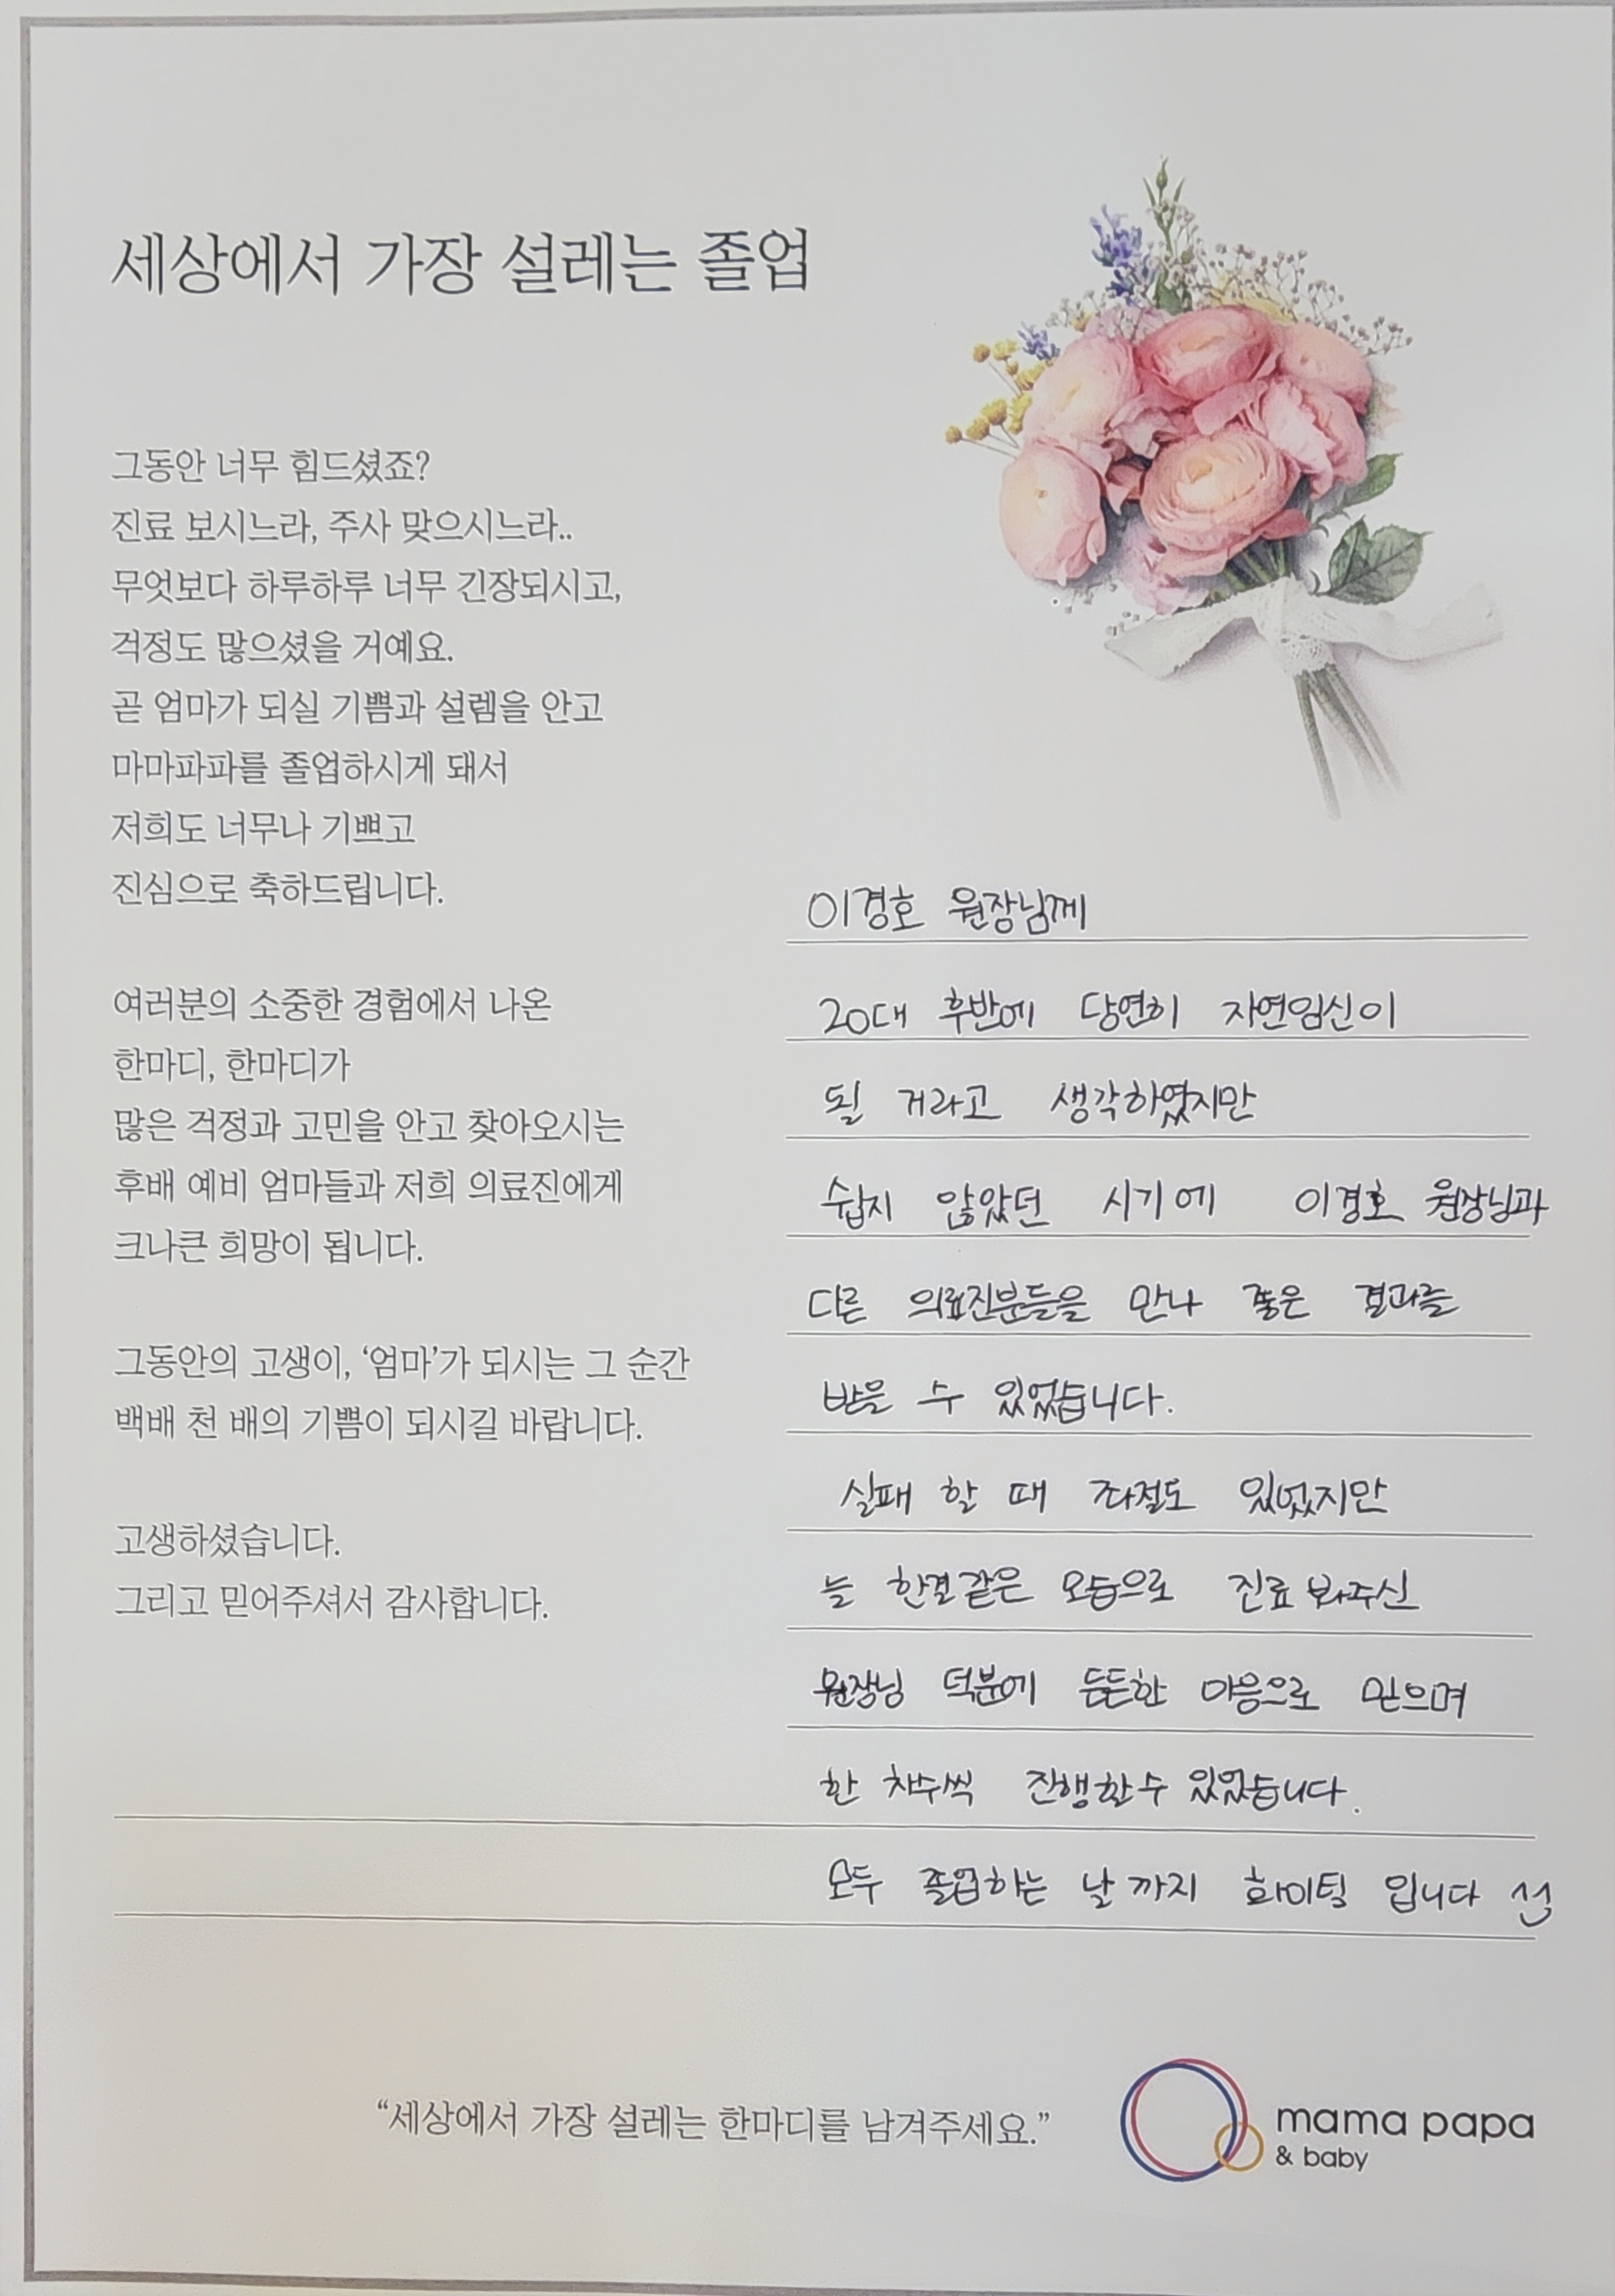 세상에서 가장 설레는 졸업
그동안 너무 힘드셨죠?
진료 보시느라, 주사 맞으시느라..
무엇보다 하루하루 너무 긴장되시고,
걱정도 많으셨을 거예요.
곧 엄마가 되실 기쁨과 설렘을 안고
마마파파를 졸업하시게 돼서
저희도 너무나 기쁘고
진심으로 축하드립니다.
여러분의 소중한 경험에서 나온
한마디, 한마디가
많은 걱정과 고민을 안고 찾아오시는
후배 예비 엄마들과 저희 의료진에게
크나큰 희망이 됩니다.
그동안의 고생이, ‘엄마’가 되시는 그 순간
백배 천 배의 기쁨이 되시길 바랍니다.
고생하셨습니다.
그리고 믿어주셔서 감사합니다.
이경호 원장님께
20대 후반에 당연히 자연임신이
될 거라고 생각하였지만
쉽지 않았던 시기에 이경호 원장님과
다른 의료진분들을 만나 좋은 결과를
받을 수 있었습니다.
실패 할 때 좌절도 있었지만
늘 한결같은 모습으로 진료 봐주신
원장님 덕분에 든든한 마음으로 믿으며
한 차수씩 진행할 수 있었습니다.
모두 졸업하는 날까지 화이팅 입니다
“세상에서 가장 설레는 한마디를 남겨주세요.”
mama papa
& baby